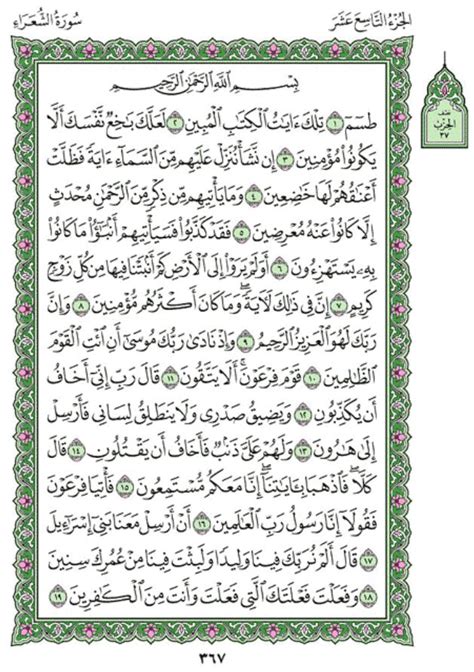 الجزء التاسع عشر
سورة الشعراء
نصف
الحزب
٣٧
بِسْمِ اللَّهِ الرَّحْمَٰنِ الرَّحِيمِ
طسٓمٓ ١ تِلْكَ ءَايَٰتُ ٱلْكِتَٰبِ ٱلْمُبِينِ ٢ لَعَلَّكَ بَٰخِعٌ نَّفْسَكَ أَلَّا
يَكُونُوا۟ مُؤْمِنِينَ ٣ إِن نَّشَأْ نُنَزِّلْ عَلَيْهِم مِّنَ ٱلسَّمَآءِ ءَايَةً فَظَلَّتْ
أَعْنَٰقُهُمْ لَهَا خَٰضِعِينَ ٤ وَمَا يَأْتِيهِم مِّن ذِكْرٍ مِّنَ ٱلرَّحْمَٰنِ مُحْدَثٍ
إِلَّا كَانُوا۟ عَنْهُ مُعْرِضِينَ ٥ فَقَدْ كَذَّبُوا۟ فَسَيَأْتِيهِمْ أَنۢبَٰٓؤُا۟ مَا كَانُوا۟
بِهِۦ يَسْتَهْزِءُونَ ٦ أَوَلَمْ يَرَوْا۟ إِلَى ٱلْأَرْضِ كَمْ أَنۢبَتْنَا فِيهَا مِن كُلِّ زَوْجٍ
كَرِيمٍ ٧ إِنَّ فِى ذَٰلِكَ لَءَايَةً وَمَا كَانَ أَكْثَرُهُم مُّؤْمِنِينَ ٨ وَإِنَّ
رَبَّكَ لَهُوَ ٱلْعَزِيزُ ٱلرَّحِيمُ ٩ وَإِذْ نَادَىٰ رَبُّكَ مُوسَىٰٓ أَنِ ٱئْتِ ٱلْقَوْمَ
ٱلظَّٰلِمِينَ ١٠ قَوْمَ فِرْعَوْنَ أَلَا يَتَّقُونَ ١١ قَالَ رَبِّ إِنِّىٓ أَخَافُ
أَن يُكَذِّبُونِ ١٢ وَيَضِيقُ صَدْرِى وَلَا يَنطَلِقُ لِسَانِى فَأَرْسِلْ
إِلَىٰ هَٰرُونَ ١٣ وَلَهُمْ عَلَىَّ ذَنۢبٌ فَأَخَافُ أَن يَقْتُلُونِ ١٤ قَالَ
كَلَّا فَٱذْهَبَا بِـَٔايَٰتِنَآ إِنَّا مَعَكُم مُّسْتَمِعُونَ ١٥ فَأْتِيَا فِرْعَوْنَ
فَقُولَآ إِنَّا رَسُولُ رَبِّ ٱلْعَٰلَمِينَ ١٦ أَنْ أَرْسِلْ مَعَنَا بَنِىٓ إِسْرَٰٓءِيلَ
١٧ قَالَ أَلَمْ نُرَبِّكَ فِينَا وَلِيدًا وَلَبِثْتَ فِينَا مِنْ عُمُرِكَ سِنِينَ
١٨ وَفَعَلْتَ فَعْلَتَكَ ٱلَّتِى فَعَلْتَ وَأَنتَ مِنَ ٱلْكَٰفِرِينَ ١٩
٣٦٧